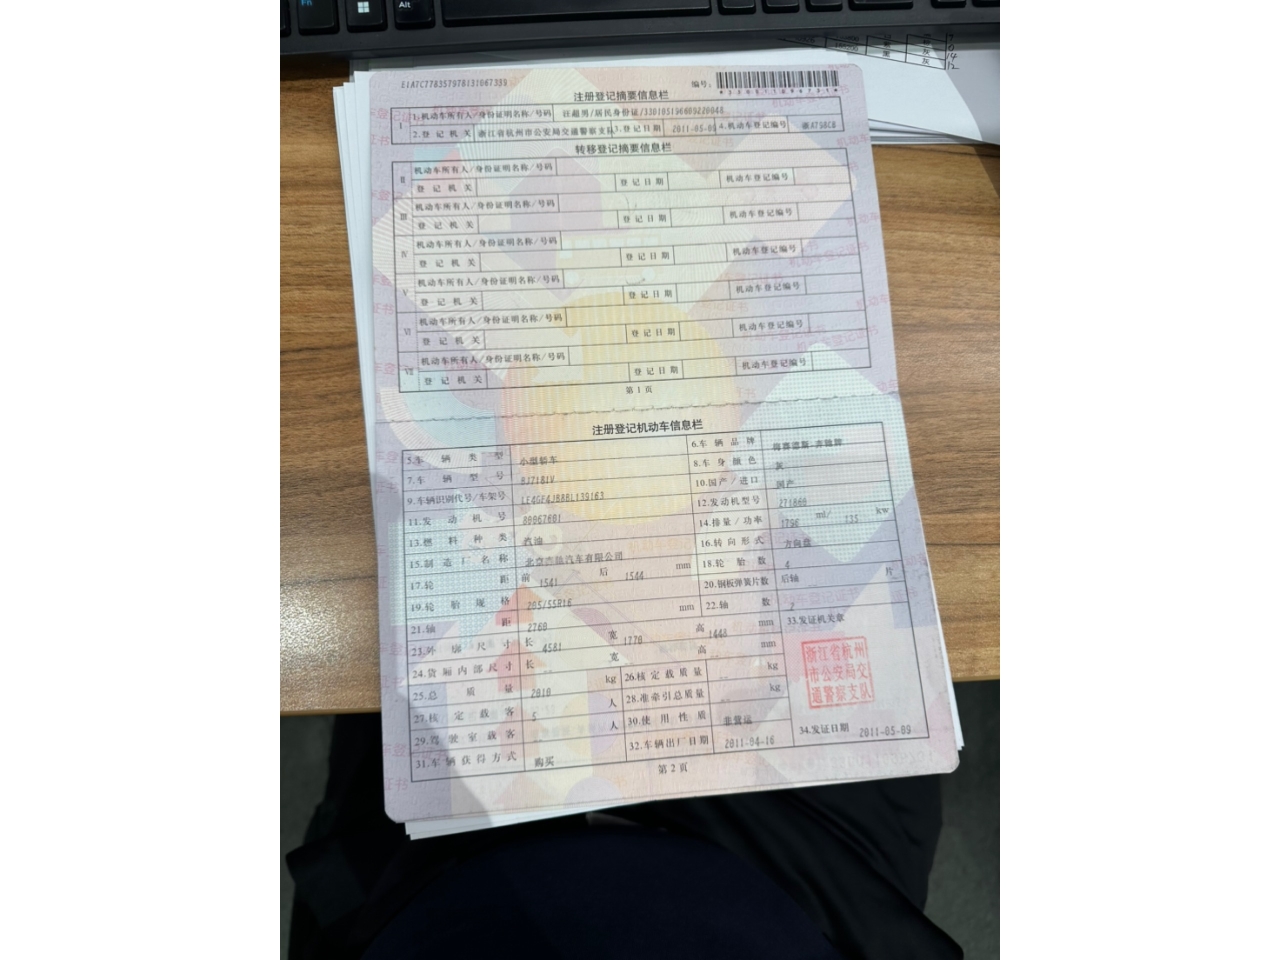 Fn Alt
E1A7C7783579781310673B9
编号:
注册登记摘要信息栏
I 1.机动车所有人/身份证明名称/号码 汪超男/居民身份证/330105196609220048
2.登记机关 浙江省杭州市公安局交通警察支队 3.登记日期 2011-05-09 4.机动车登记编号
转移登记摘要信息栏
II 机动车所有人/身份证明名称/号码
登记机关 登记日期 机动车登记编号
III 机动车所有人/身份证明名称/号码
登记机关 登记日期 机动车登记编号
IV 机动车所有人/身份证明名称/号码
登记机关 登记日期 机动车登记编号
V 机动车所有人/身份证明名称/号码
登记机关 登记日期 机动车登记编号
VI 机动车所有人/身份证明名称/号码
登记机关 登记日期 机动车登记编号
VII 机动车所有人/身份证明名称/号码
登记机关 登记日期 机动车登记编号
第1页
注册登记机动车信息栏
5.车辆类型 小型轿车 6.车辆品牌 梅赛德斯-奔驰牌
7.车辆型号 BJ7181V 8.车身颜色 灰
9.车辆识别代号/车架号 LE4GF4JB8BL139163 10.国产/进口 国产
11.发动机号 80967601 12.发动机型号 271860
13.燃料种类 汽油 14.排量/功率 1796 ml/ 135 kw
15.制造厂名称 北京奔驰汽车有限公司 16.转向形式 方向盘
17.轮距 前 1541 后 1544 mm 18.轮胎数 4
19.轮胎规格 205/55R16 20.钢板弹簧片数 后轴 -- 片
21.轴距 2760 mm 22.轴数 2
23.外廓尺寸 长 4581 宽 1770 高 1448 mm 33.发证机关章
24.货厢内部尺寸 长 -- 宽 -- 高 -- mm
25.总质量 2010 kg 26.核定载质量 -- kg
27.核定载客 5 人 28.准牵引总质量 -- kg
29.驾驶室载客 -- 人 30.使用性质 非营运
31.车辆获得方式 购买 32.车辆出厂日期 2011-04-16 34.发证日期 2011-05-09
浙江省杭州
市公安局交
通警察支队
第2页